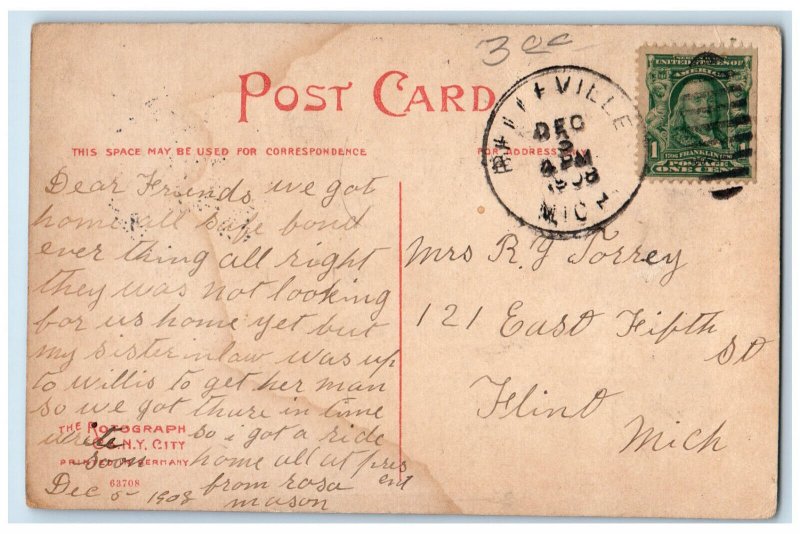 3 00
POST CARD
THIS SPACE MAY BE USED FOR CORRESPONDENCE
FOR ADDRESS
VILLE
DEC
5
4 PM
1908
MICH
UNITED STATES OF
AMERICA
1
1706 FRANKLIN 1790
POSTAGE
ONE CENT
Dear Friends we got
home all safe bond
ever thing all right
they was not looking
for us home yet but
my sister in law was up
to willis to get her man
so we got thare in time
write so i got a ride
soon home all at pres
ent
Dec 5 - 1908 from rosa
mason
THE ROTOGRAPH
CO. N.Y. CITY
PRINTED IN GERMANY
63708
Mrs R. J Torrey
121 East Fifth
St
Flint
Mich